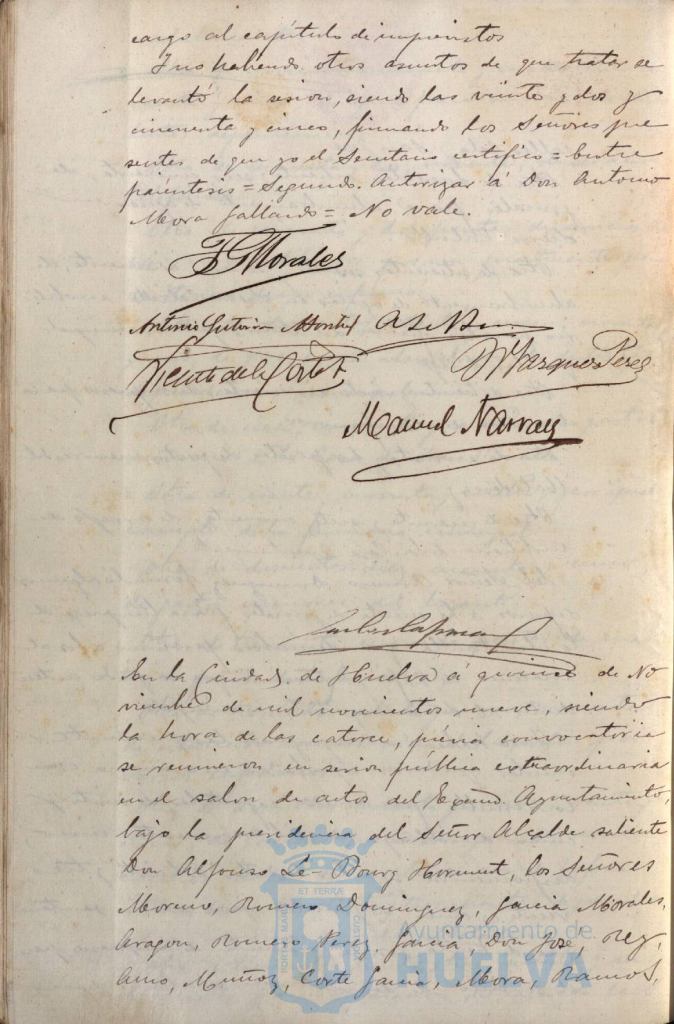 cargo al capítulo de imprevistos
Y no habiendo otros asuntos de que tratar se
levantó la sesion, siendo las veinte y dos y
cincuenta y cinco, firmando los Señores pre
sentes de que yo el Secretario certifico = Entre
paréntesis = Segundo. Autorizar á Don Antonio
Mora Gallardo = No vale.
F G Morales
Antonio
Vicente de la Corte
Vazquez Perez
Manuel Narvaez
En la Ciudad de Huelva á quince de No
viembre de mil novecientos nueve, siendo
la hora de las catorce, prévia convocatoria
se reunieron en sesion pública extraordinaria
en el salon de actos del Excmo. Ayuntamiento,
bajo la presidencia del Señor Alcalde saliente
Don Alfonso Le-Bourg Horment, los Señores
Moreno, Romero Dominguez, Garcia Morales,
Aragon, Romero Perez, Garcia, Don José, Rey,
Amo, Muñoz, Corte Garcia, Mora, Ramos,
Ayuntamiento de
HUELVA